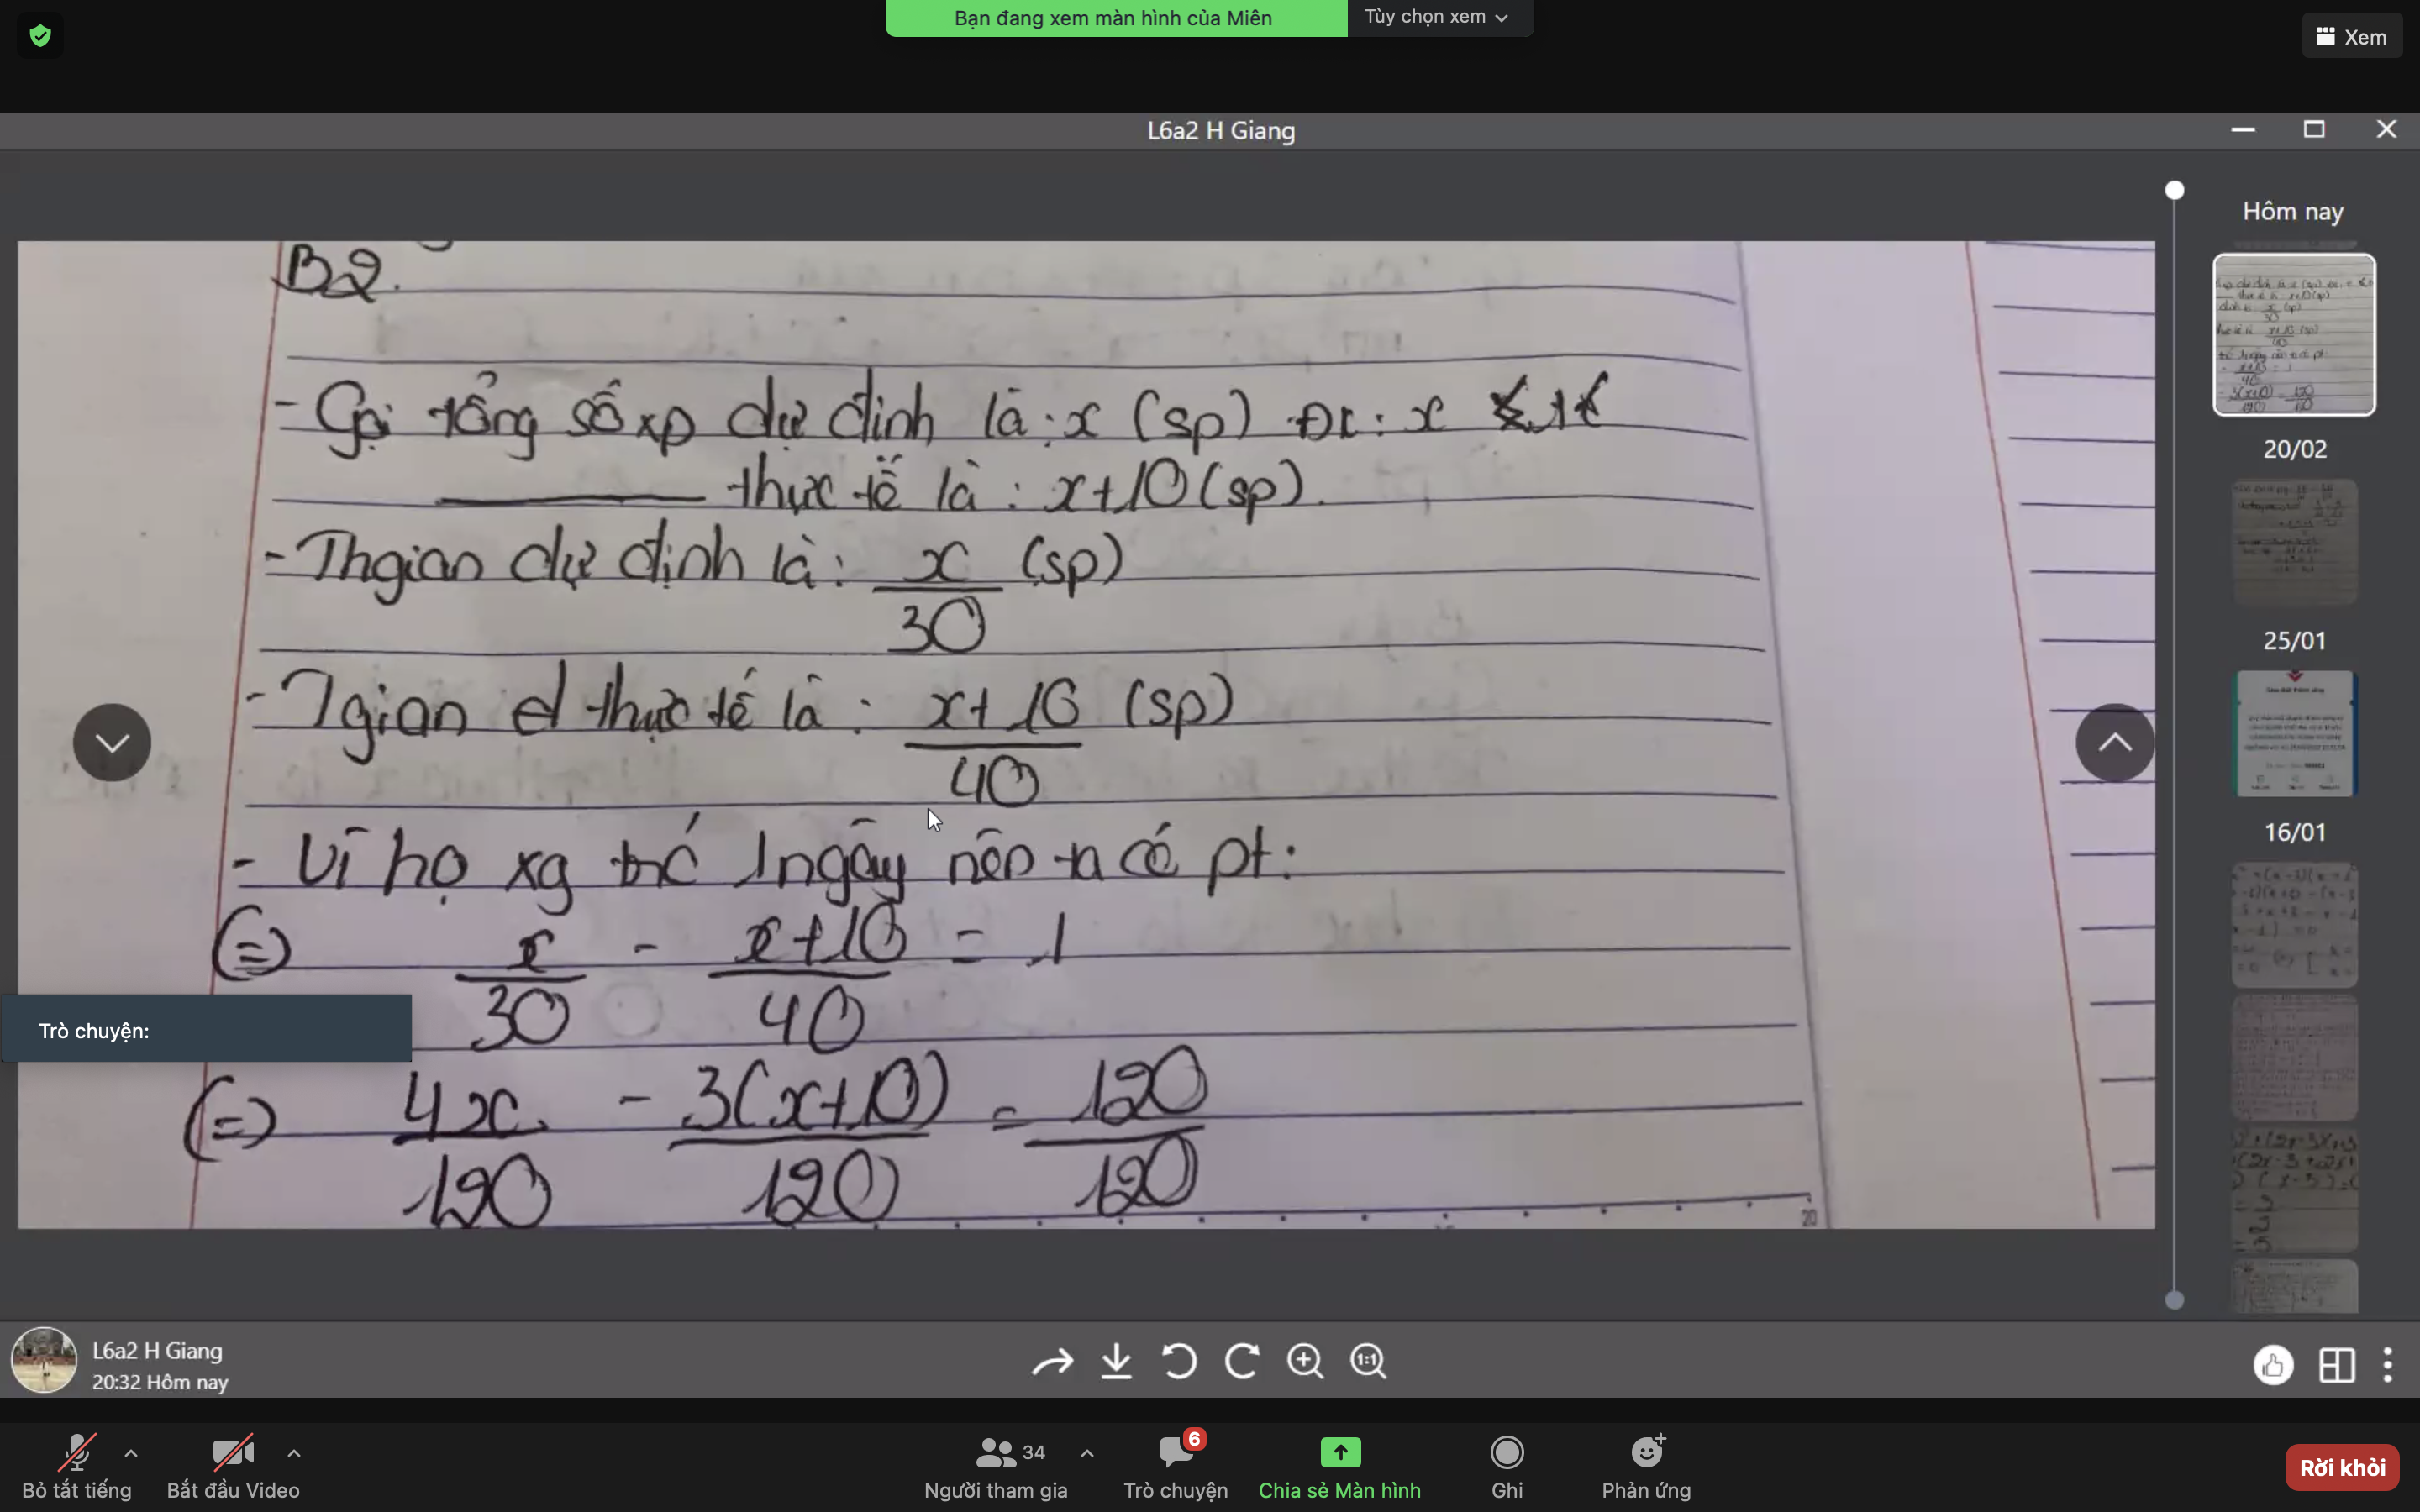 Bạn đang xem màn hình của Miên
Tùy chọn xem
Xem
L6a2 H Giang
Hôm nay
20/02
25/01
16/01
B2.
- Gọi tổng số xp dự định là: x (sp) Đk: x
thực tế là : x+10 (sp).
- Thgian dự định là: x/30 (sp)
- Tgian thực tế là : x+10/40 (sp)
- Vì họ xg trc 1 ngày nên ta có pt:
(=) x/30 - x+10/40 = 1
(=) 4x/120 - 3(x+10)/120 = 120/120
20
Trò chuyện:
L6a2 H Giang
20:32 Hôm nay
1:1
Bỏ tắt tiếng
Bắt đầu Video
34
Người tham gia
6
Trò chuyện
Chia sẻ Màn hình
Ghi
Phản ứng
Rời khỏi